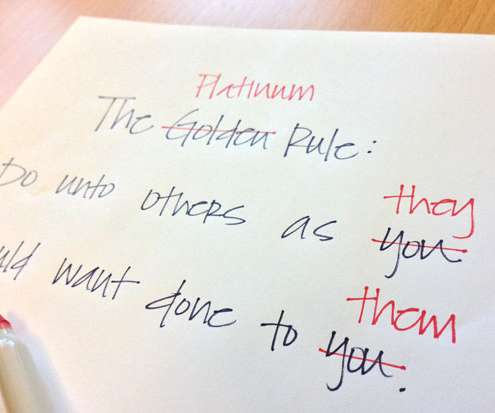 Platinum
The Golden Rule:
they
Do unto others as you
them
want done to you.